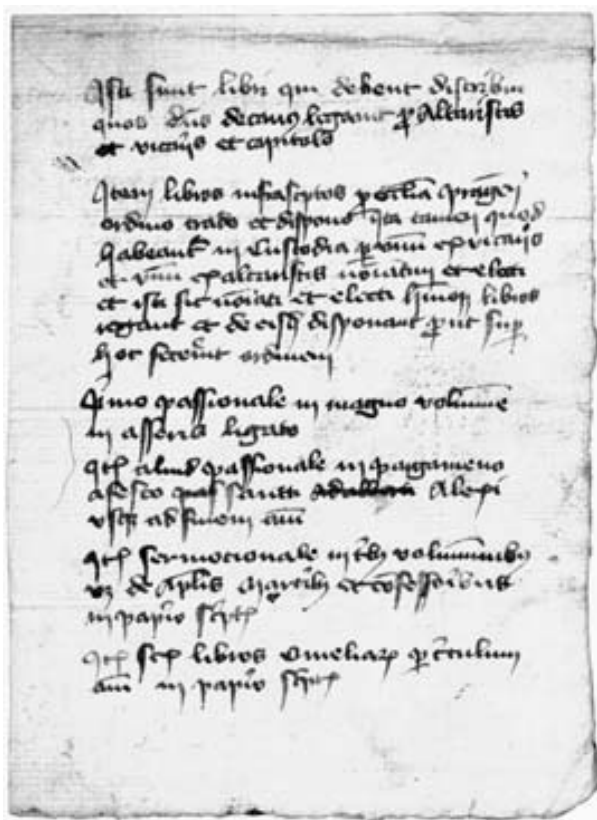 Isti sunt libri qui debent distribui
quos dns decanus legavit p Altaristis
et vicariis et capitulo
Item libros infrascptos p ecclia pragen
ordino trado et dispono Ita tamen quod
habeant in Custodia p unum ex vicariis
et unum ex altaristis noiatum et electi
et isti sic noiati et electi hmoi libros
regant et de eisd disponant put sup
hoc fecerint ordinem
Pmo passionale in magno volumine
in asseris ligato
Ite aliud passionale in pagameno
a festo sancti Alexi
usq ad finem ani
Ite sermocionale in tribus voluminibus
vz de Aplis martirib et cofessoribus
in papiro scpt
Ite libros Omeliar p circulum
ani in papiro scpt